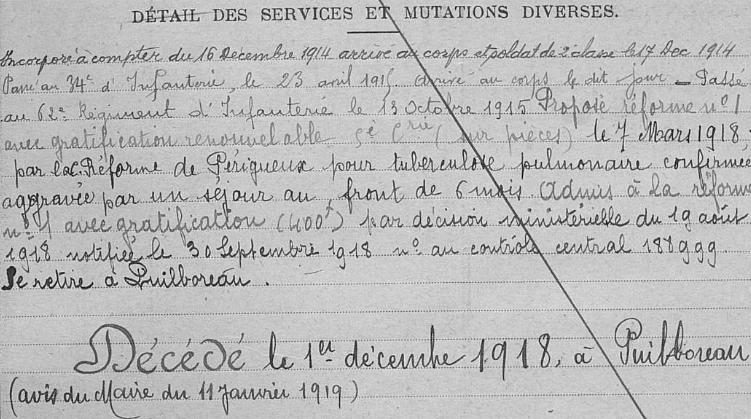 DÉTAIL DES SERVICES ET MUTATIONS DIVERSES.
Incorporé à compter du 16 Décembre 1914 arrivé au corps et soldat de 2e classe le 17 Dec 1914
Passé au 34e d'Infanterie, le 23 avril 1915. Arrivé au corps le dit jour _ Passé
au 62e Régiment d'Infanterie le 13 Octobre 1915 Proposé réforme no 1
avec gratification renouvelable 5e Crie (sur pièces) le 7 Mars 1918,
par la C. Réforme de Périgueux pour tuberculose pulmonaire confirmée
aggravée par un séjour au front de 6 mois Admis à la réforme
no 1 avec gratification (400f) par décision ministérielle du 19 août
1918 notifiée le 30 Septembre 1918 no au contrôle central 187999
Se retire à Puilboreau.
Décédé le 1er décembre 1918, à Puilboreau
(avis du Maire du 11 Janvier 1919)